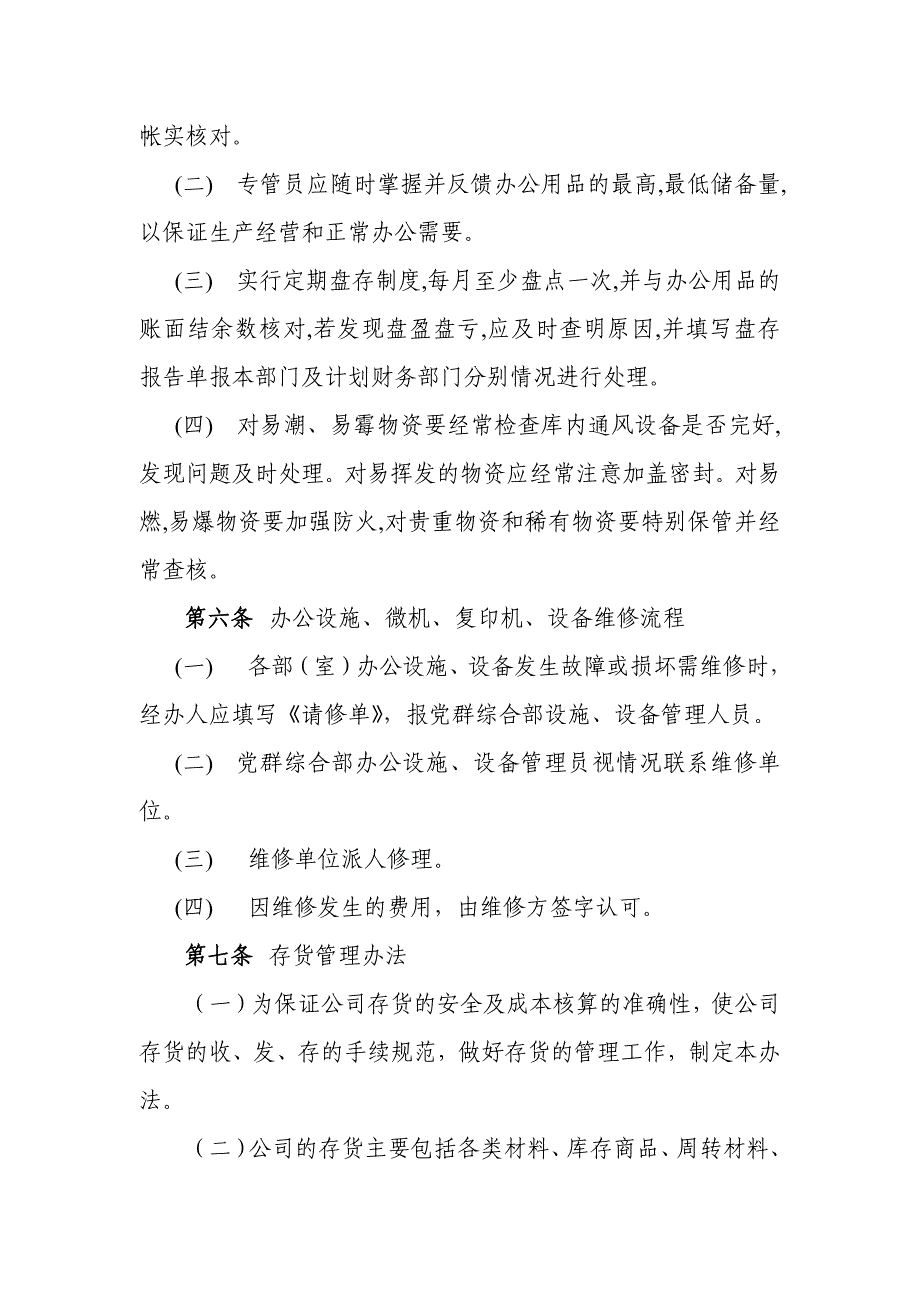 帐实核对。
(二)　专管员应随时掌握并反馈办公用品的最高,最低储备量,
以保证生产经营和正常办公需要。
(三)　实行定期盘存制度,每月至少盘点一次,并与办公用品的
账面结余数核对,若发现盘盈盘亏,应及时查明原因,并填写盘存
报告单报本部门及计划财务部门分别情况进行处理。
(四)　对易潮、易霉物资要经常检查库内通风设备是否完好,
发现问题及时处理。对易挥发的物资应经常注意加盖密封。对易
燃,易爆物资要加强防火,对贵重物资和稀有物资要特别保管并经
常查核。
第六条 办公设施、微机、复印机、设备维修流程
(一)　各部（室）办公设施、设备发生故障或损坏需维修时，
经办人应填写《请修单》，报党群综合部设施、设备管理人员。
(二)　党群综合部办公设施、设备管理员视情况联系维修单
位。
(三)　维修单位派人修理。
(四)　因维修发生的费用，由维修方签字认可。
第七条 存货管理办法
（一）为保证公司存货的安全及成本核算的准确性，使公司
存货的收、发、存的手续规范，做好存货的管理工作，制定本办
法。
（二）公司的存货主要包括各类材料、库存商品、周转材料、